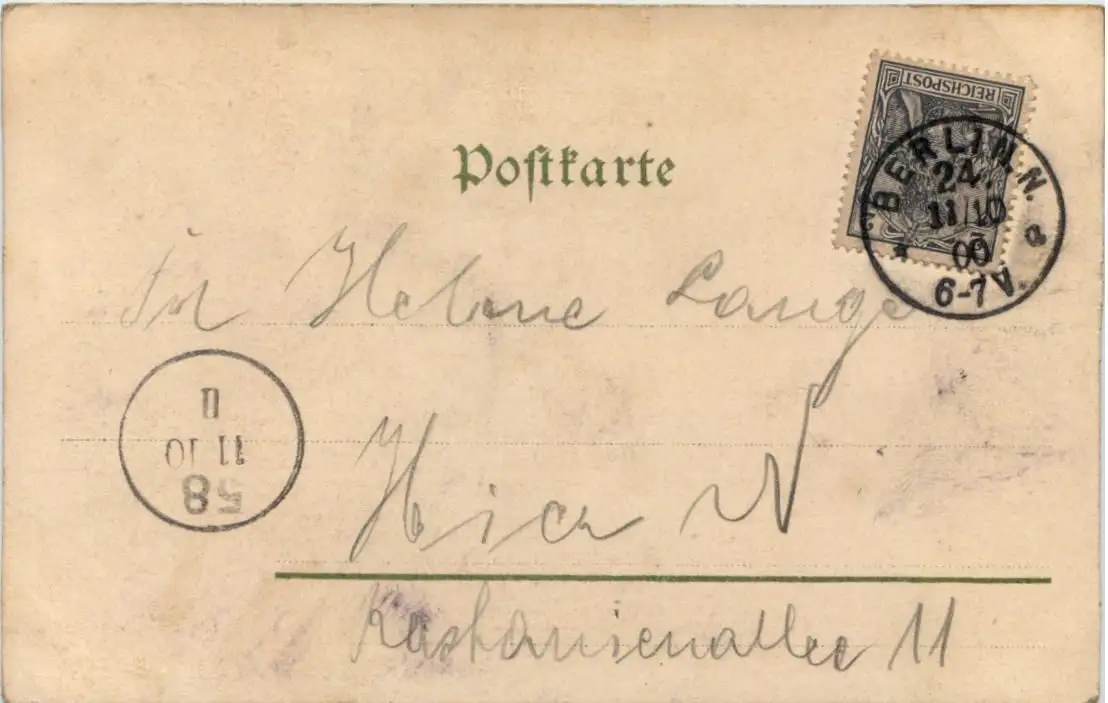 REICHSPOST
BERLIN.N.
24.
11/10
00
6-7V.
* a
Postkarte
Frl Helene Lange
Hier N
58
11 10
Kastanienallee 11